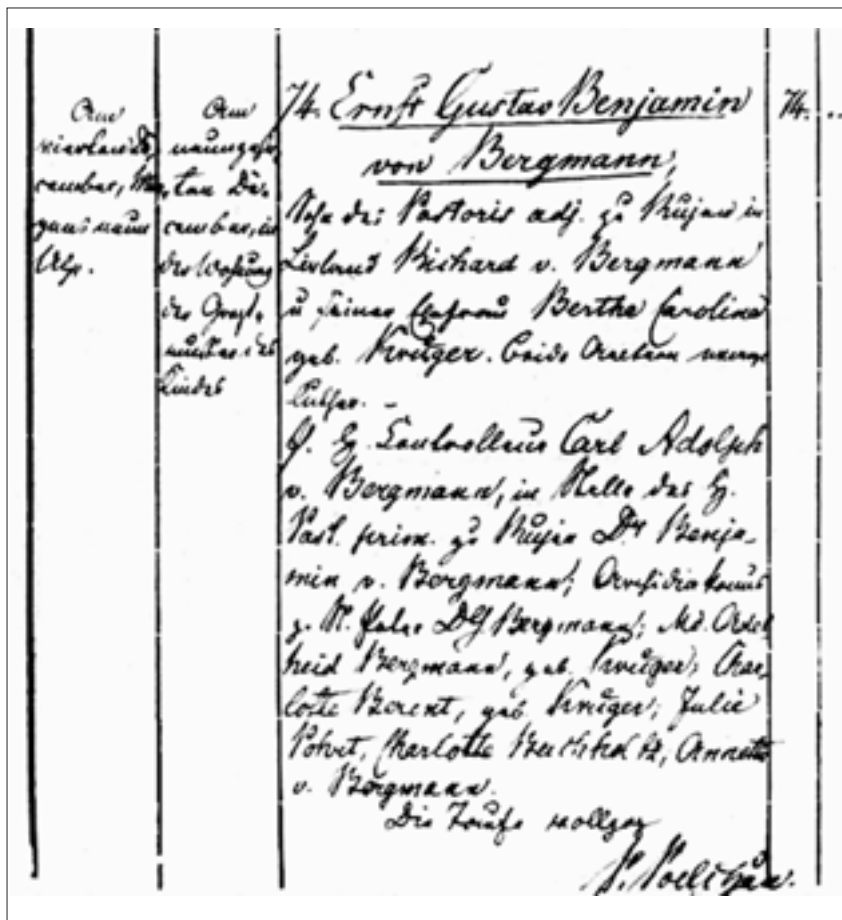 Am
vierten De-
cember, Mor-
gens neun
Uhr.
Am
neunzehn-
ten De-
cember, in
der Wohnung
der Groß-
mutter des
Kindes
74. Ernst Gustav Benjamin
von Bergmann,
Sohn des Pastoris adj. zu Rujen in
Livland Richard v. Bergmann
u seiner Ehefrau Bertha Carolina
geb. Krüger. beide Aeltern
luther. –
Controlleur Carl Adolph
v. Bergmann, in Stelle des H.
Past. prim. zu Rujen Dr Benja-
min v. Bergmann; Archidiakonus
z. St. Peter Bergmann; Md. Adel-
heid Bergmann, geb. Krüger; Char-
lotte Berent, geb Krüger; Julie
Charlotte Annette
v. Bergmann.
Die Taufe vollzog
P. Poelchau.
74. ..